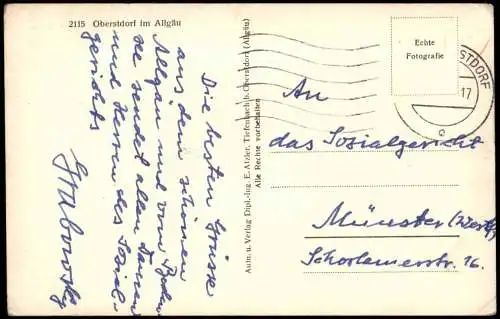 2115 Oberstdorf im Allgäu
Die besten Grüsse
aus dem schönen
Allgäu und vom
sendet allen Damen
und Herren des Sozial-
gerichts
Grabowsky
Aufn. u. Verlag Dipl.-Ing. E. Atzler, Tiefenbach b. Oberstdorf (Allgäu)
Alle Rechte vorbehalten
Echte
Fotografie
STDORF
17
An
das Sozialgericht
Münster (Westf)
Schorlemerstr. 16.